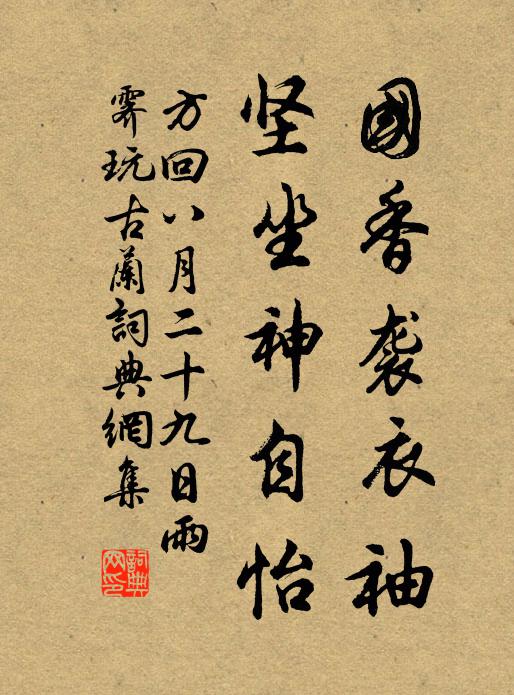 國香袭衣袖
坚坐神自怡
方回八月二十九日雨
霁玩古蘭詞典網集
詞典
网印